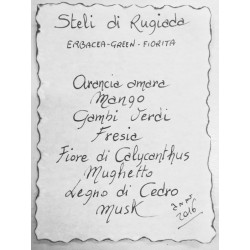 Steli di Rugiada
ERBACEA-GREEN-FIORITA
Arancia amara
Mango
Gambi Verdi
Fresia
Fiore di Calycanthus
Mughetto
Legno di Cedro
Musk
anno
2016